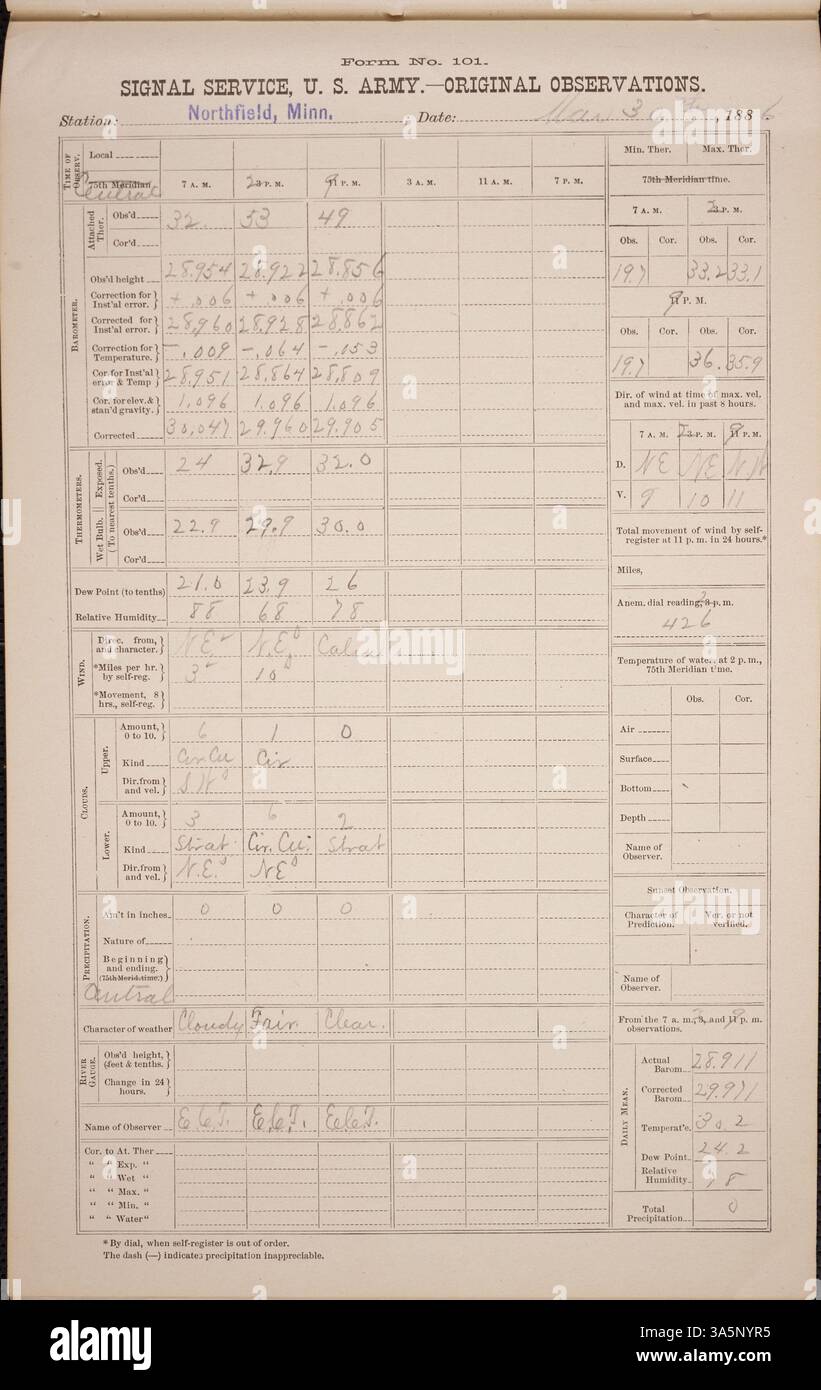 Form No. 101.
SIGNAL SERVICE, U. S. ARMY.—ORIGINAL OBSERVATIONS.
Station: Northfield, Minn. , Date: Mar 3 , 188
TIME OF OBSERV. Local
75th Meridian Central 7 A. M. 2 3 P. M. 9 11 P. M. 3 A. M. 11 A. M. 7 P. M.
BAROMETER.
Attached Ther. Obs'd 32. 53 49
Cor'd
Obs'd height 28.954 28.922 28.856
Correction for Inst'al error. +.006 +.006 +.006
Corrected for Inst'al error. 28.960 28.928 28.862
Correction for Temperature. -.009 -.064 -.053
Cor. for Inst'al error & Temp 28.951 28.864 28.809
Cor. for elev. & stan'd gravity. 1.096 1.096 1.096
Corrected 30.047 29.960 29.905
THERMOMETERS.
(To nearest tenths.)
Exposed. Obs'd 24 32.9 32.0
Cor'd
Wet Bulb. Obs'd 22.9 29.9 30.0
Cor'd
Dew Point (to tenths) 21.0 23.9 26
Relative Humidity 88 68 78
WIND.
Direc. from, and character. N.E. N.E. Calm
*Miles per hr. by self-reg. 3 10
*Movement, 8 hrs., self-reg.
CLOUDS.
Upper. Amount, 0 to 10. 6 1 0
Kind Cir. Cu Cir
Dir. from and vel. S.W
Lower. Amount, 0 to 10. 3 6 2
Kind Strat. Cir. Cu. Strat
Dir. from and vel. N.E. NE
PRECIPITATION.
Am't in inches 0 0 0
Nature of
Beginning and ending. (75th Merid. time.)
Central
Character of weather Cloudy Fair. Clear.
RIVER GAUGE.
Obs'd height, (feet & tenths.)
Change in 24 hours.
Name of Observer
Cor. to At. Ther
" " Exp. "
" " Wet "
" " Max. "
" " Min. "
" " Water"
*By dial, when self-register is out of order.
The dash (—) indicates precipitation inappreciable.
Min. Ther. Max. Ther.
75th Meridian time.
7 A. M. 2 3 P. M.
Obs. Cor. Obs. Cor.
19.7 33.2 33.1
9 11 P. M.
Obs. Cor. Obs. Cor.
19.7 36. 35.9
Dir. of wind at time of max. vel. and max. vel. in past 8 hours.
7 A. M. 2 3 P. M. 9 11 P. M.
D. NE NE N.W
V. 9 10 11
Total movement of wind by self-register at 11 p. m. in 24 hours.*
Miles,
Anem. dial reading, 3 p. m.
426
Temperature of water at 2 p. m., 75th Meridian time.
Obs. Cor.
Air
Surface
Bottom
Depth
Name of Observer.
Sunset Observation.
Character of Prediction. Ver. or not verified.
Name of Observer.
From the 7 a. m., 3, and 11 p. m. observations.
DAILY MEAN.
Actual Barom. 28.911
Corrected Barom. 29.971
Temperat'e. 30.2
Dew Point 24.2
Relative Humidity
Total Precipitation 0
alamy
Image ID: 3A5NYR5
www.alamy.com